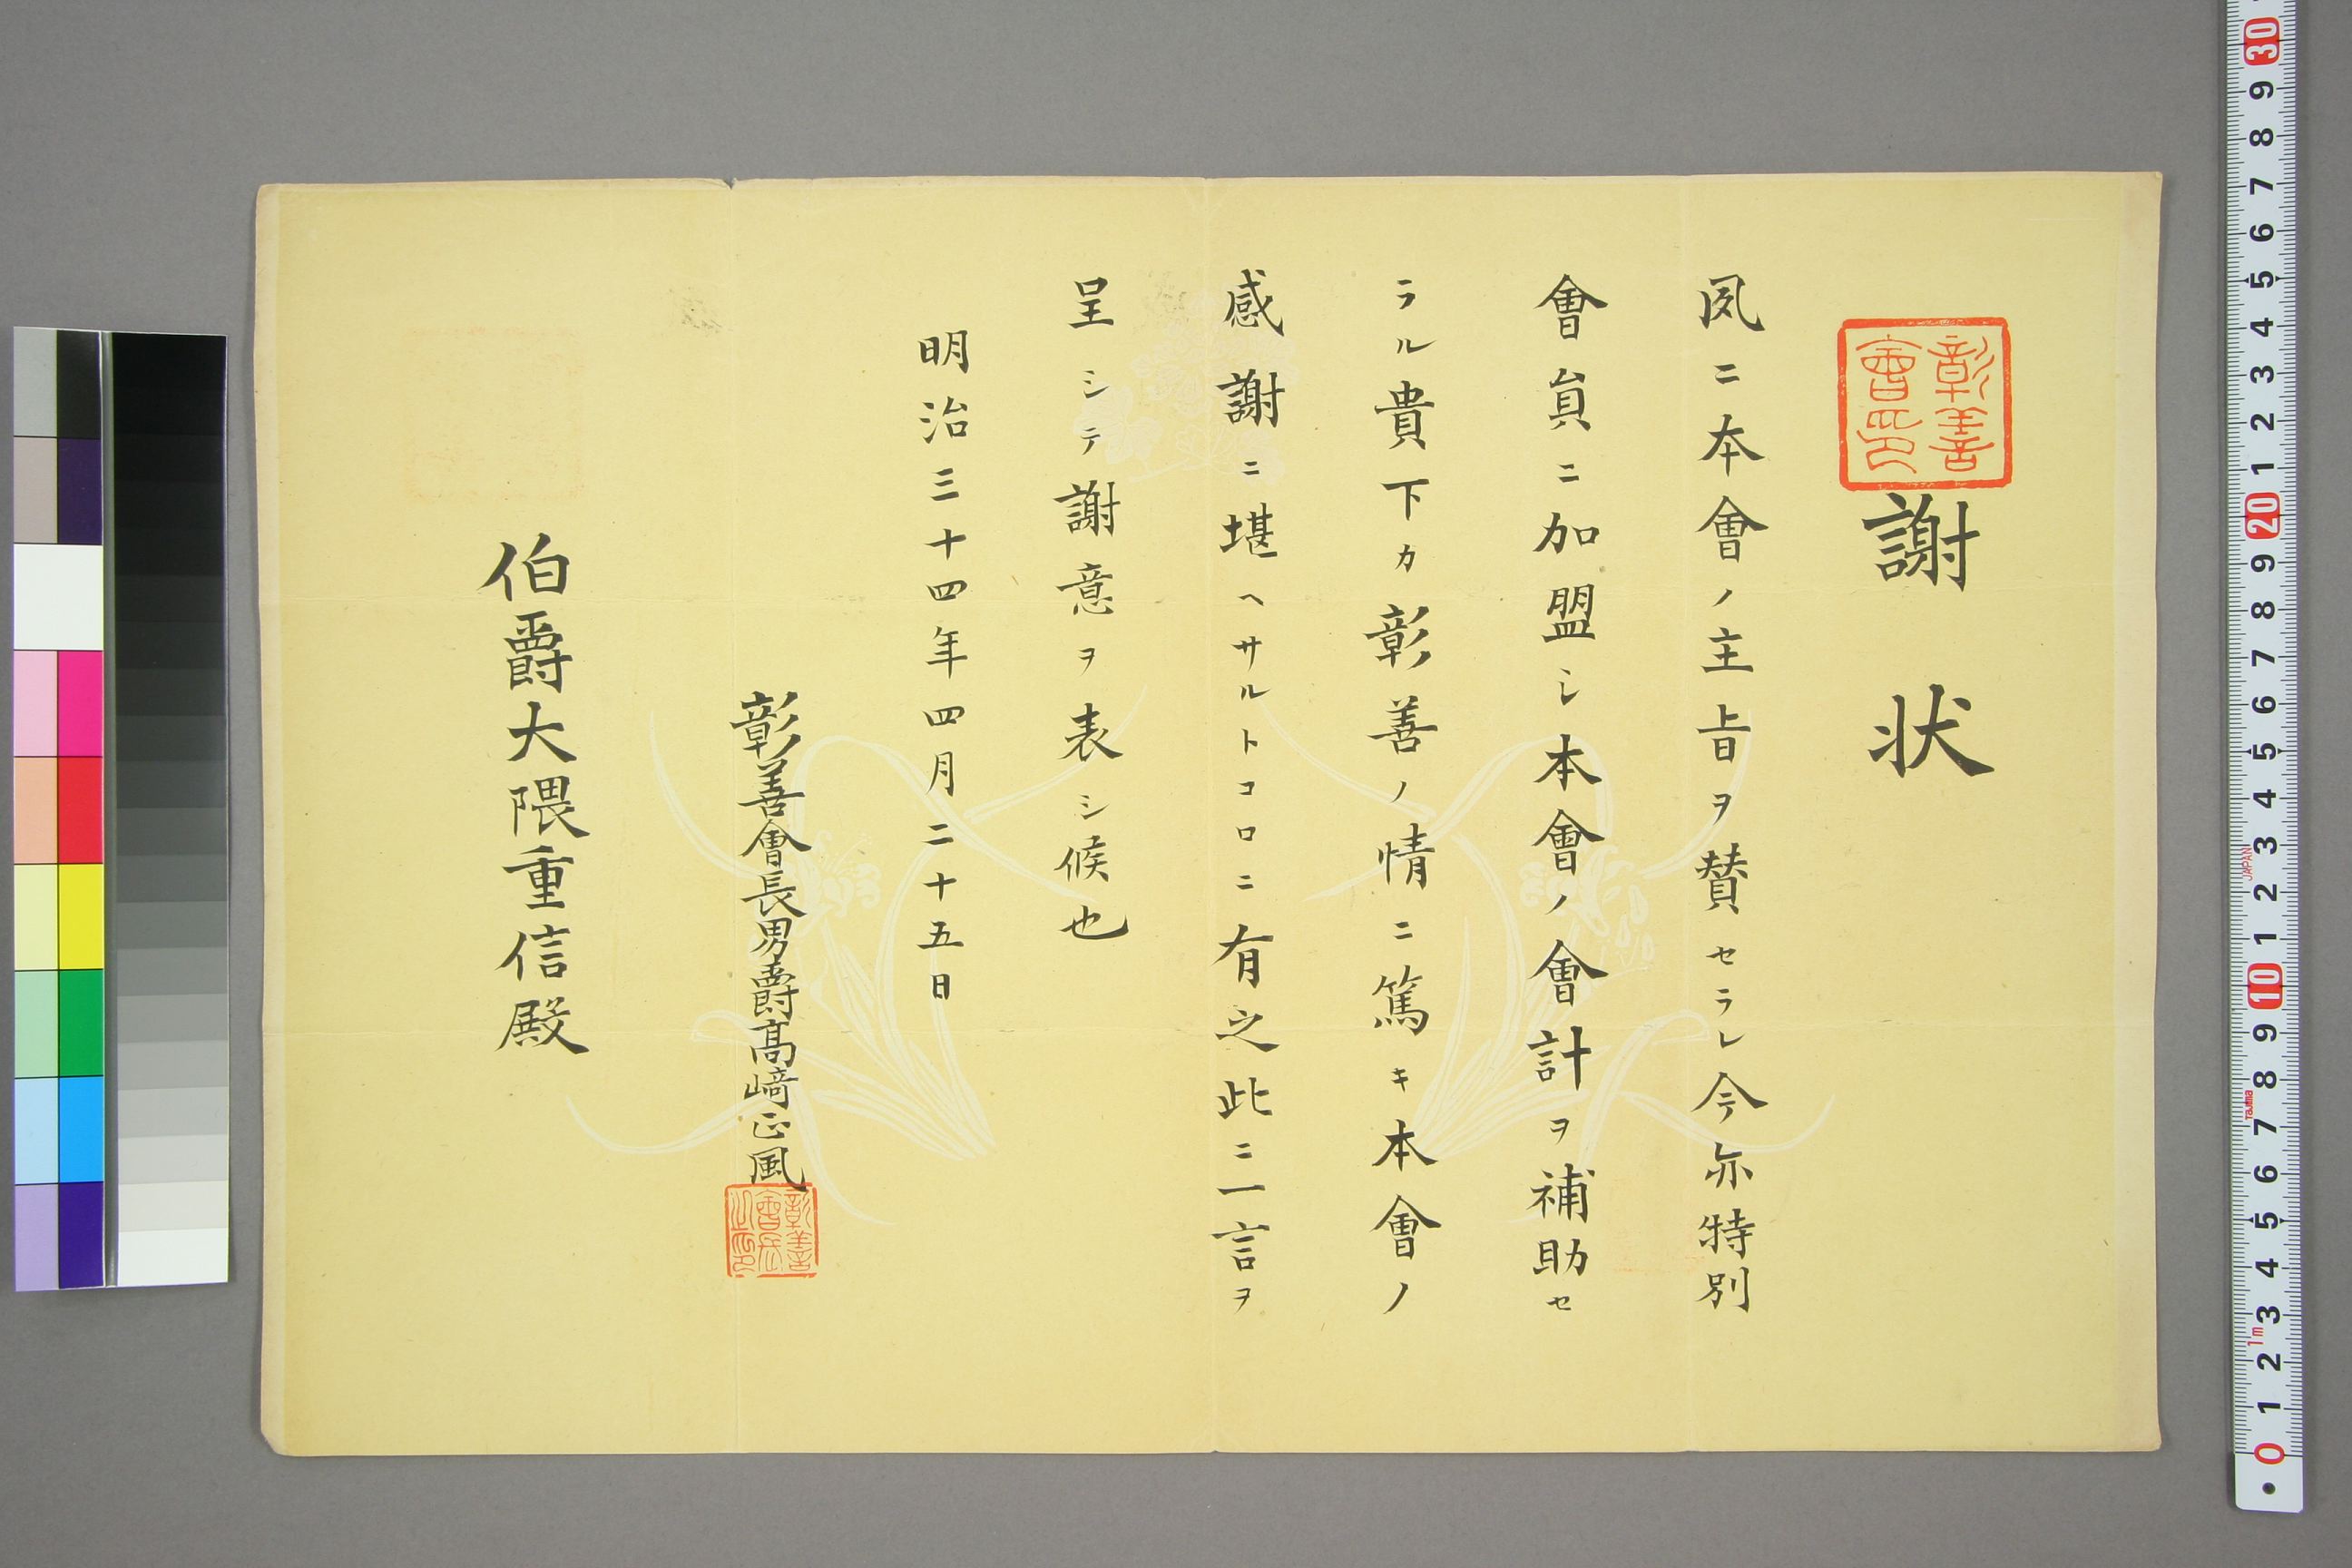 彰善會印
謝状
夙ニ本會ノ主旨ヲ賛セラレ今亦特別
會員ニ加盟シ本會ノ會計ヲ補助セ
ラル貴下カ彰善ノ情ニ篤キ本會ノ
感謝ニ堪ヘサルトコロニ有之此ニ一言ヲ
呈シテ謝意ヲ表シ候也
明治三十四年四月二十五日
彰善會長男爵髙﨑正風
彰善會長之印
伯爵大隈重信殿
0 1 2 3 4 5 6 7 8 9 10 1 2 3 4 5 6 7 8 9 20 1 2 3 4 5 6 7 8 9 30
1m
Tajima
JAPAN